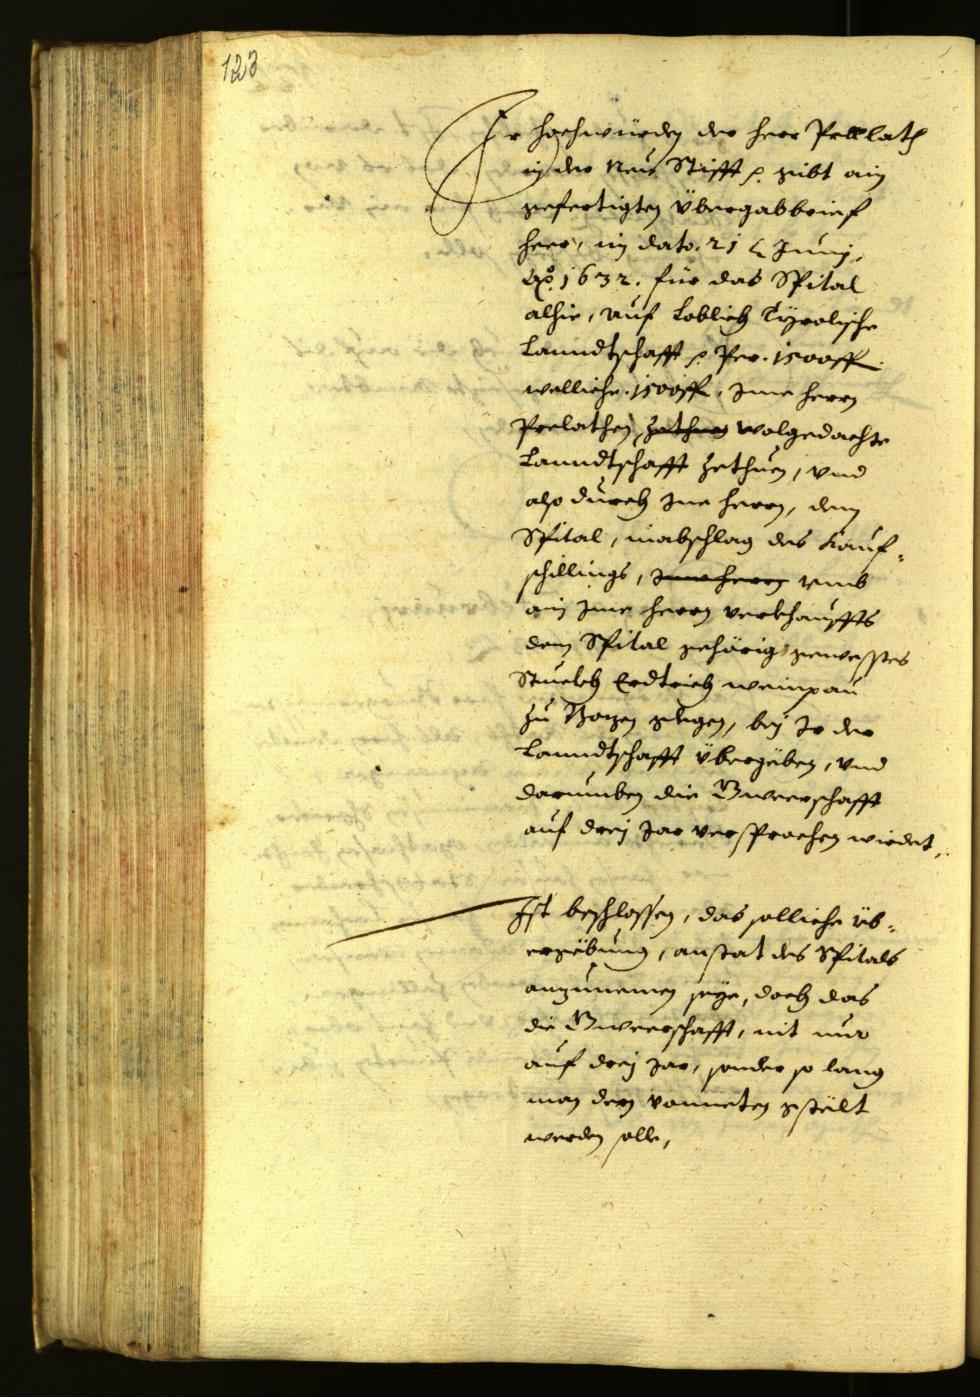 123
Ir hochwürden der herr Prellath
in der Neu Stifft p. gibt ain
gefertigten Übergabbrief
heer, in dato. 21 Junij,
Aō. 1632. für das Spital
alhie, auf Loblich Tÿrolische
Lanndtschafft p. Per. 1500 ff.
welliche. 1500 ff, Ime herrn
Prelathen, zethuen wolgedachte
Lanndtschafft zethuen, vnd
also durch Ine herrn, dem
Spital, in abschlag des Kauf¬
schillings, Ime herrn vmb
ain Ime herrn verkhauffts
dem Spital gehörig gewesstes
Stuckh Erdtrich weinpau
zu Bozen gelegen, beÿ Ir der
Lanndtschafft übergëben, vnd
darumben die Gweerschafft
auf dreÿ Jar versprochen wierdet,
Ist beschlossen, das solliche üb¬
ergëbung, anstat des Spitals
anzunemen seÿe, doch das
die Gweerschafft, nit nur
auf dreÿ Jar, sonder so lang
man dern vonneten gstëlt
werden solle,